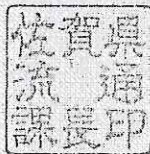 佐賀県
流通
課長印